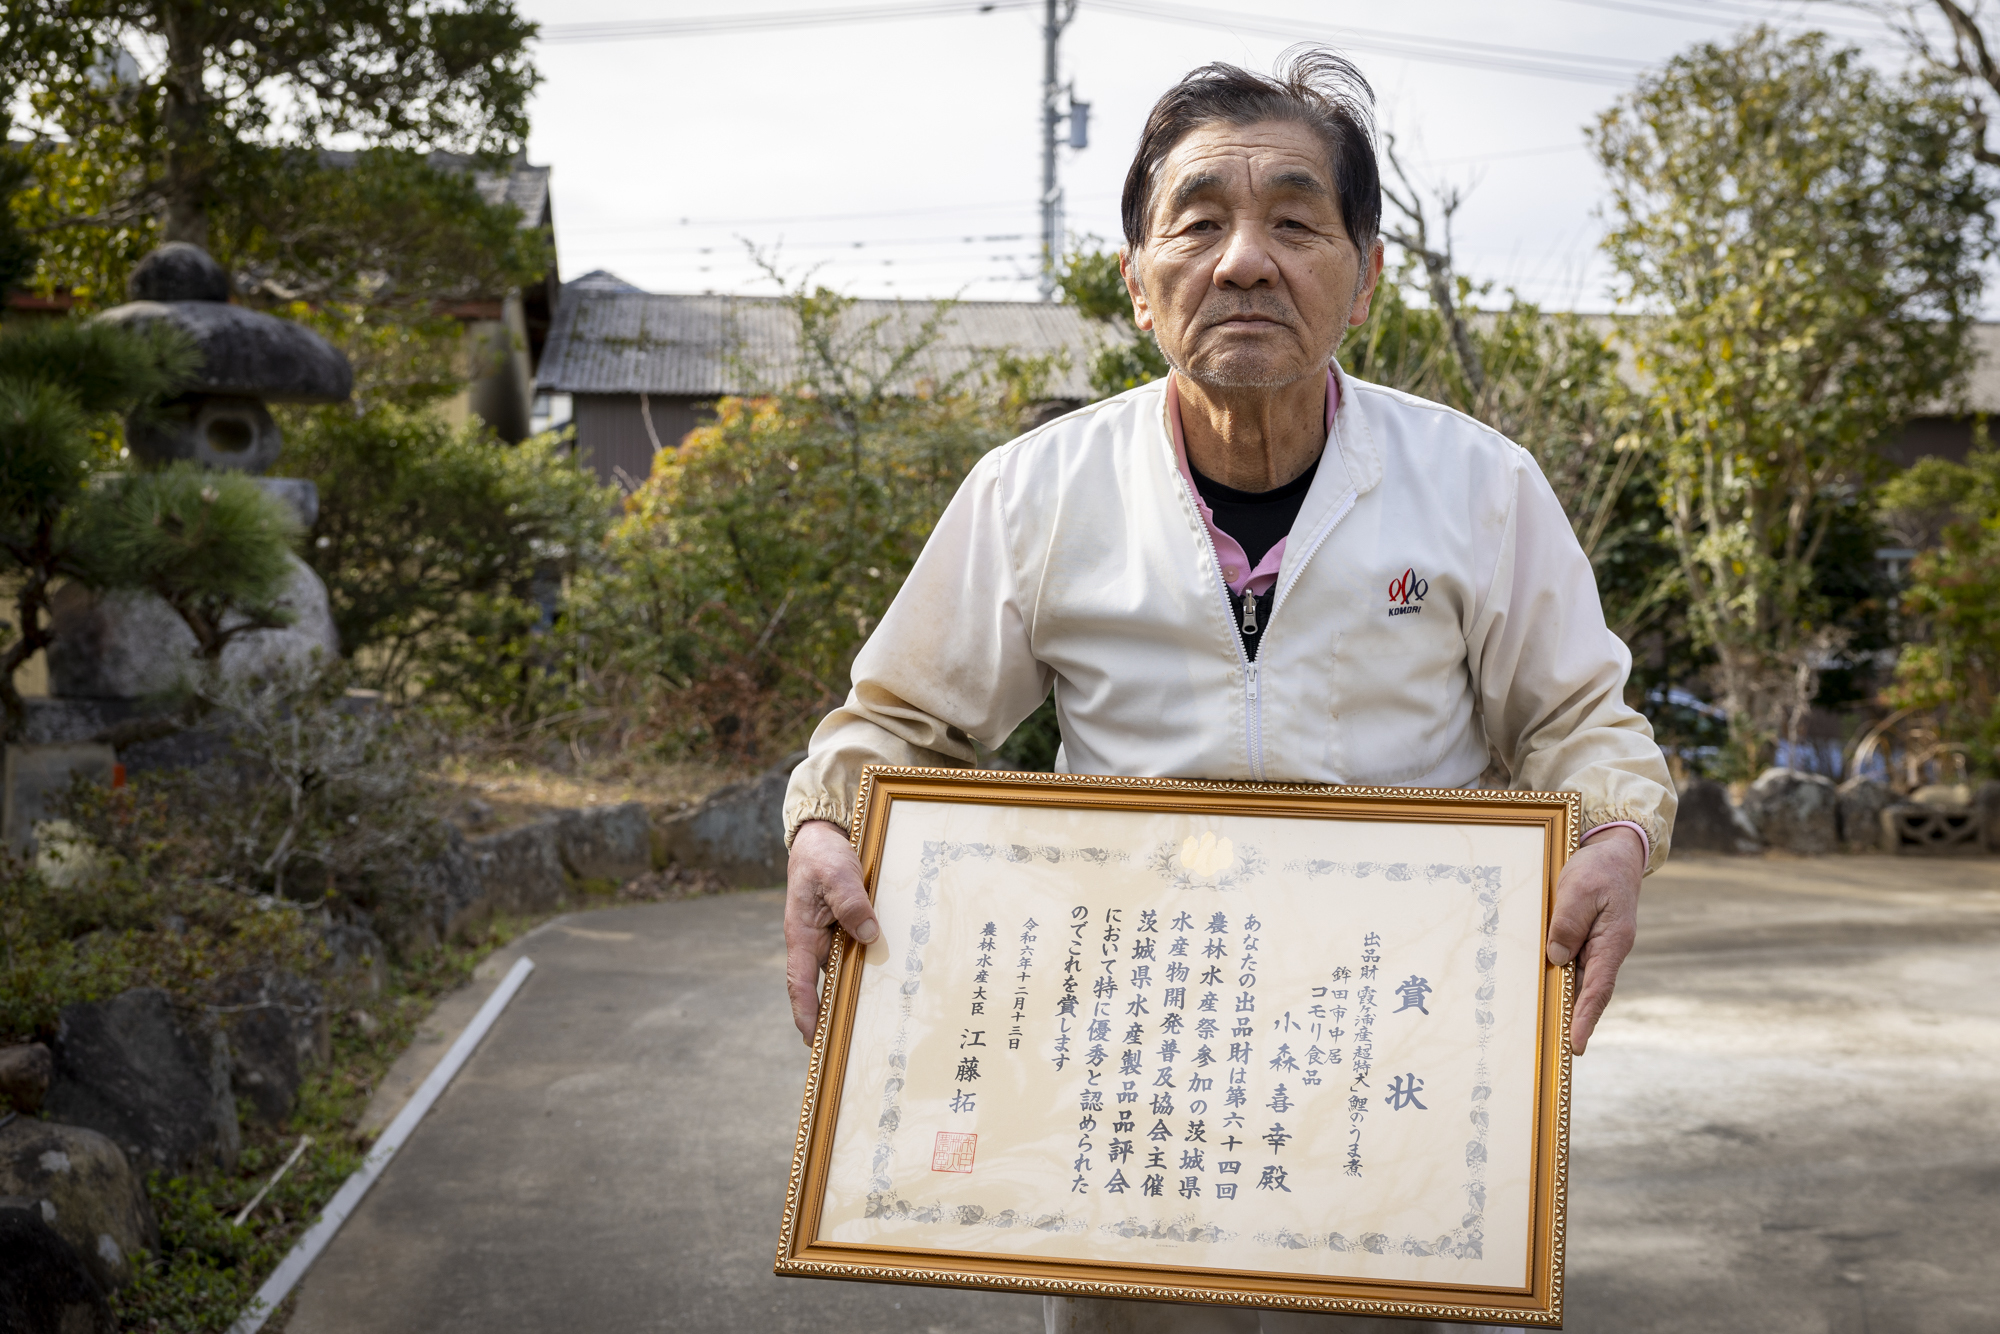 賞状
出品財 霞ヶ浦産「超特大」鯉のうま煮
鉾田市中居
コモリ食品
小森喜幸殿
あなたの出品財は第六十四回
農林水産祭参加の茨城県
水産物開発普及協会主催
茨城県水産製品品評会
において特に優秀と認められた
のでこれを賞します
令和六年十二月十三日
農林水産大臣 江藤拓
KOMORI